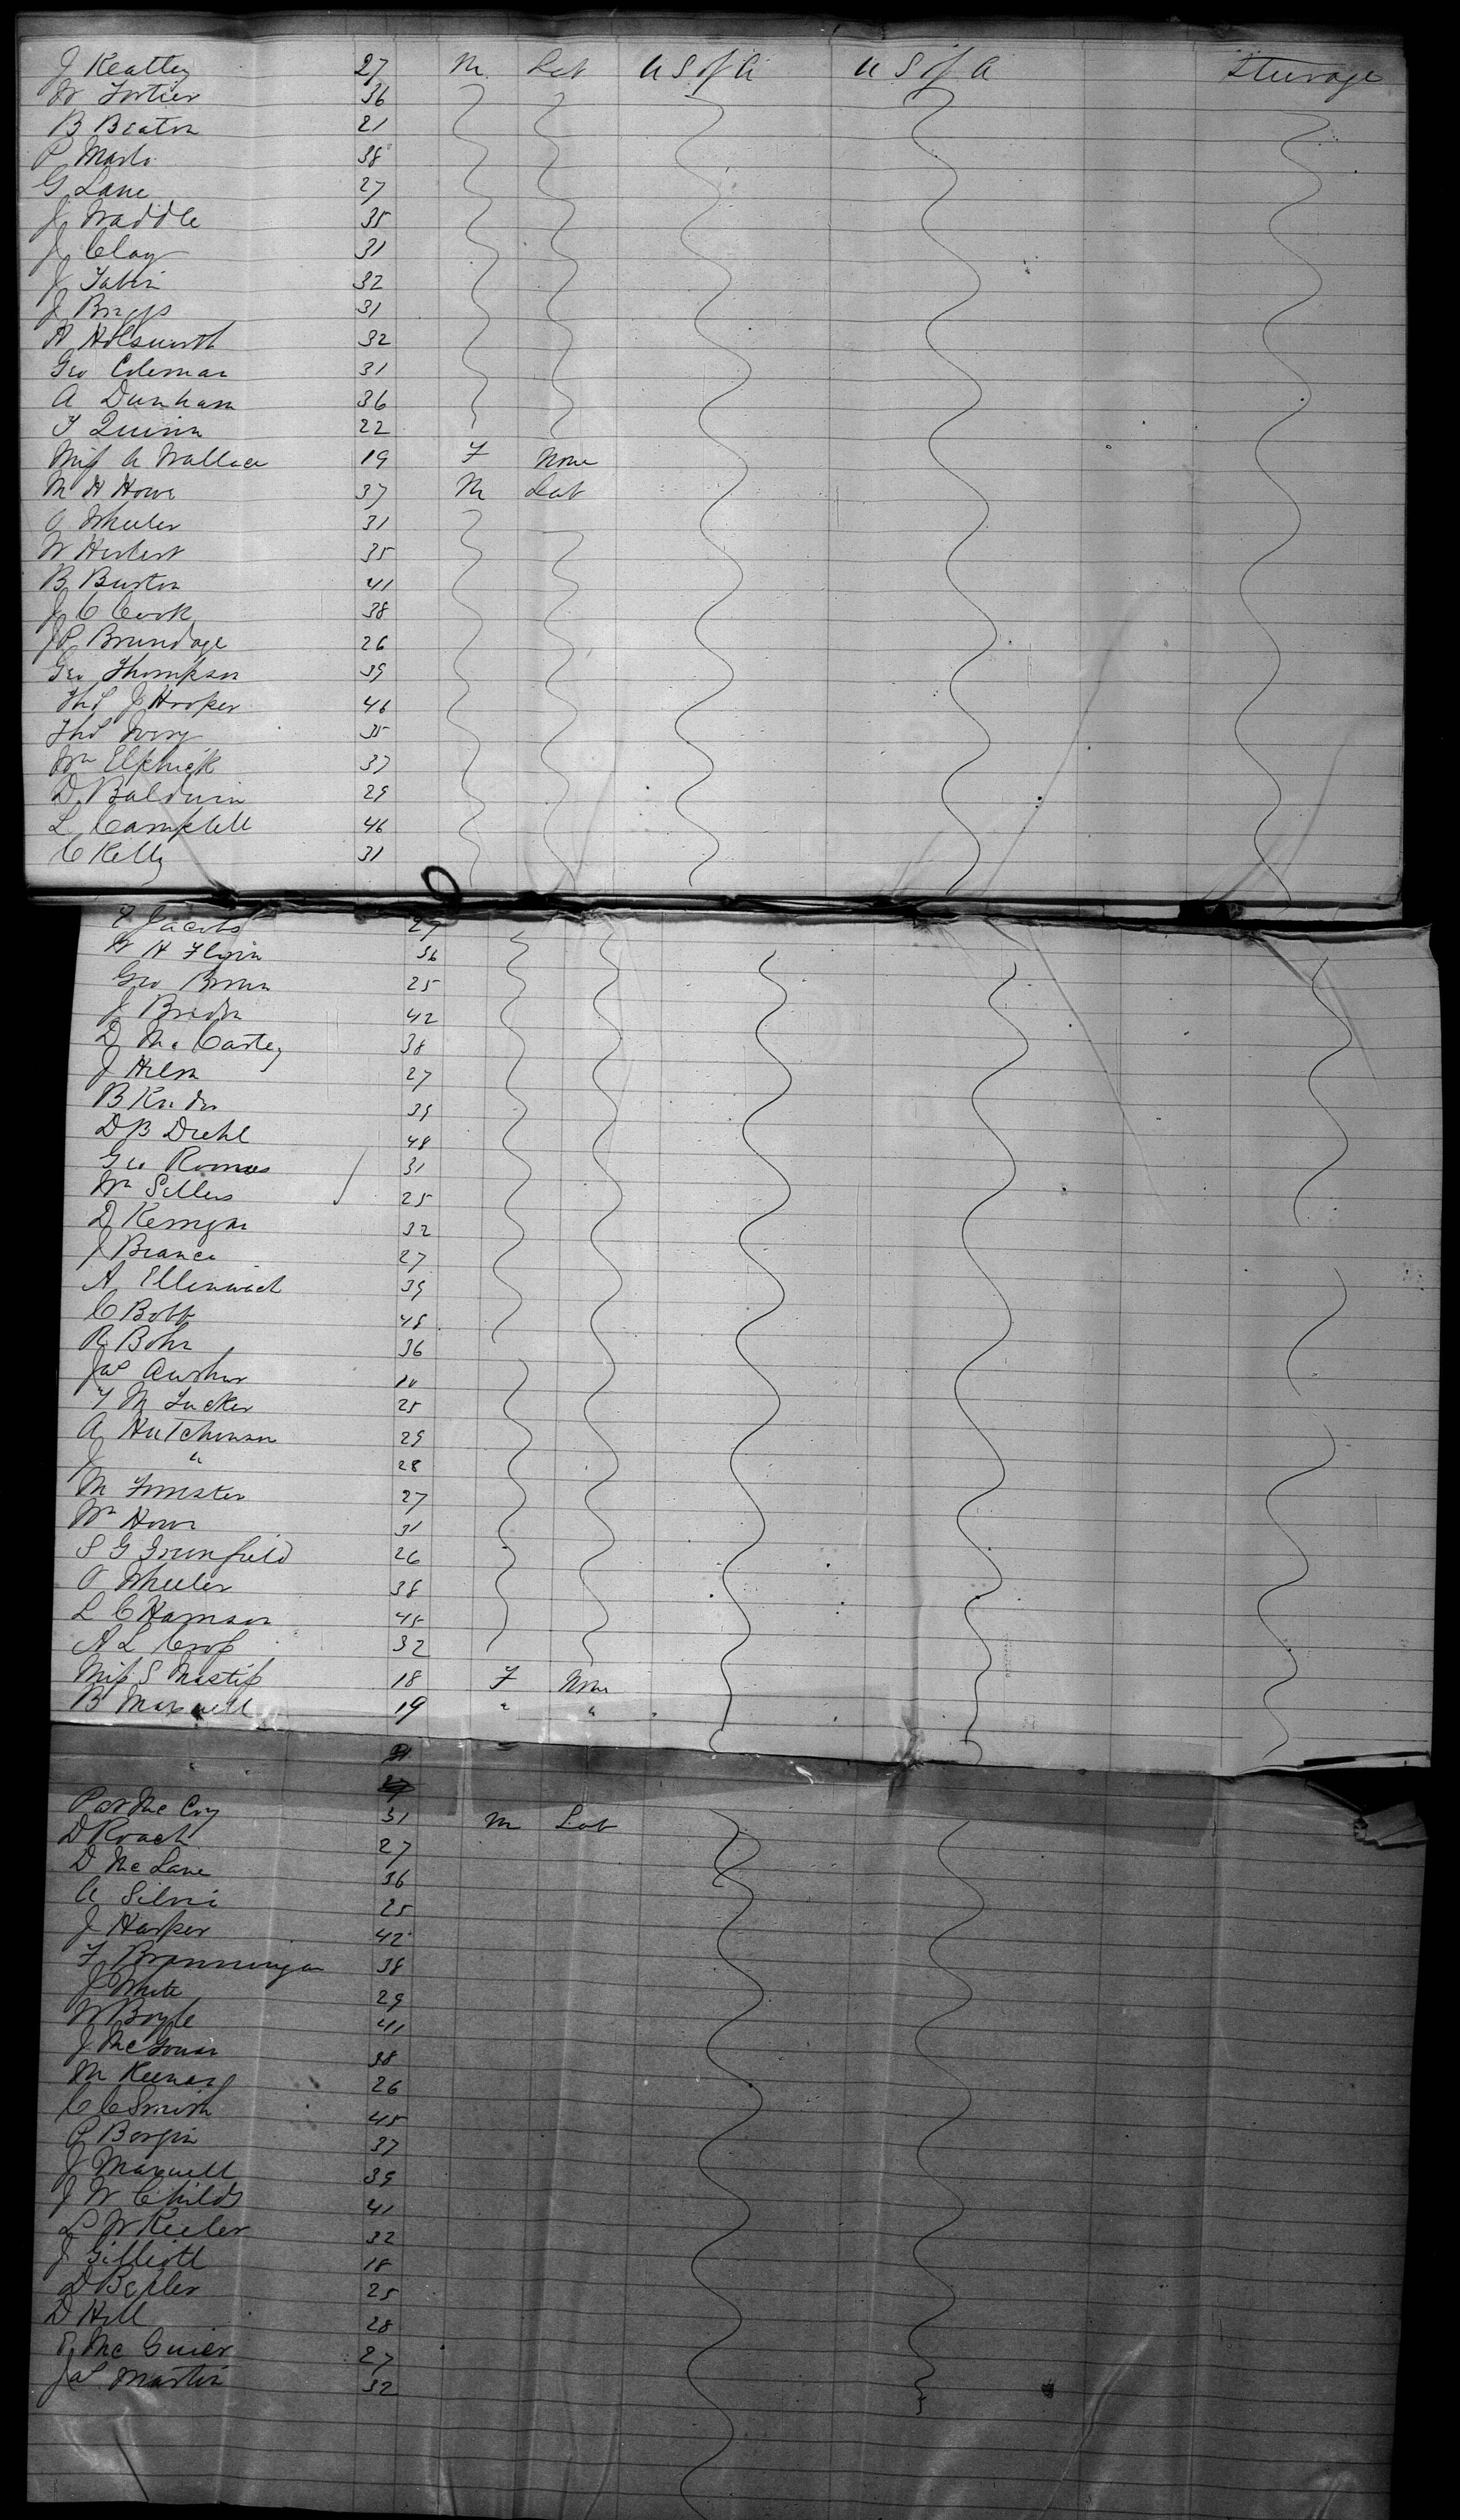 J Keatley 27 M. Lab U S of A U S of A Steerage
W Fortier 36
B Beaton 21
P 38
G Lane 27
J Waddle 35
J Clay 31
J Tabin 32
J Briggs 31
H Holsworth 32
Geo Coleman 31
A Dunham 36
T Quinn 22
Miss A Wallace 19 F None
M H Howe 37 M Lab
O Wheeler 31
W Herbert 35
B Burton 41
J C Cook 38
J P Brundage 26
Geo Thompson 39
Thos J Hooper 46
Thos 35
Wm Elphick 37
D Baldwin 29
L Campbell 46
C Kelly 31
F Jacobs 27
W H Flynn 36
Geo Brown 25
J 42
D McCartey 38
J 27
B 39
D B Diehl 48
Geo 31
Wm Sellers 25
D Kerrigan 32
J 27
A 39
C Bobb 48
R Bohn 36
Jas
T M Tucker 25
A Hutchinson 29
J " 28
M Forrester 27
Wm Howe 31
S G Greenfield 26
O Wheeler 38
L C Harrison 45
A L Cross 32
Miss S 18 F None
B Maxwell 19 " "
Pat McCoy 31 M Lab
D Roach 27
D McLane 36
A 25
J Harper 42
F Branningan 38
J White 29
W Boyle 41
J McGowan 38
M Keenan 26
C C Smith 45
P 37
J Maxwell 39
J W Childs 41
L W Keeler 32
J Gilliott 18
D 25
D Hill 28
McGuier 27
Jas Martin 32